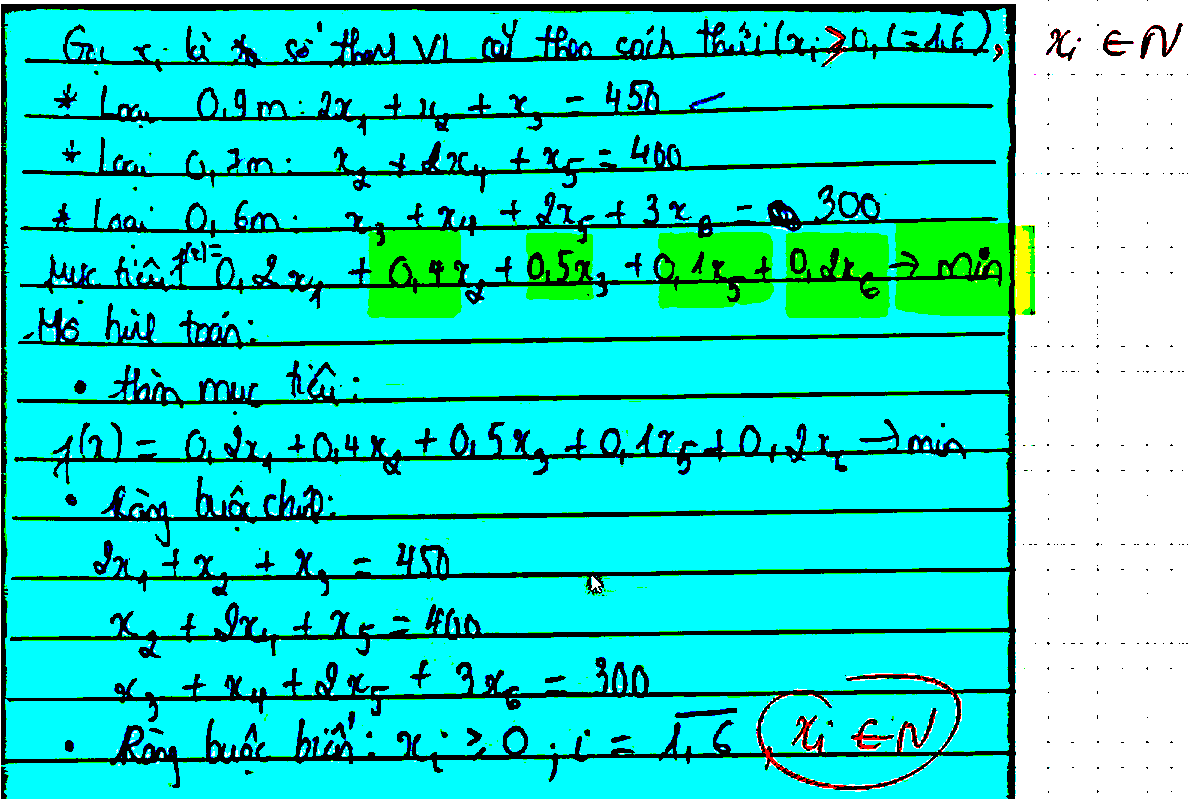 Gọi xᵢ là số thanh VL cắt theo cách thứ i (xᵢ ≥ 0, i = 1,6), xᵢ ∈ N
* Loại 0,9m: 2x₁ + x₂ + x₃ = 450
* Loại 0,7m: x₂ + 2x₄ + x₅ = 400
* Loại 0,6m: x₃ + x₄ + 2x₅ + 3x₆ = 300
Mục tiêu f(x) = 0,2x₁ + 0,4x₂ + 0,5x₃ + 0,1x₅ + 0,2x₆ → min
Mô hình toán:
• Hàm mục tiêu:
f(x) = 0,2x₁ + 0,4x₂ + 0,5x₃ + 0,1x₅ + 0,2x₆ → min
• Ràng buộc chính:
2x₁ + x₂ + x₃ = 450
x₂ + 2x₄ + x₅ = 400
x₃ + x₄ + 2x₅ + 3x₆ = 300
• Ràng buộc biến: xᵢ ≥ 0; i = 1,6, xᵢ ∈ N